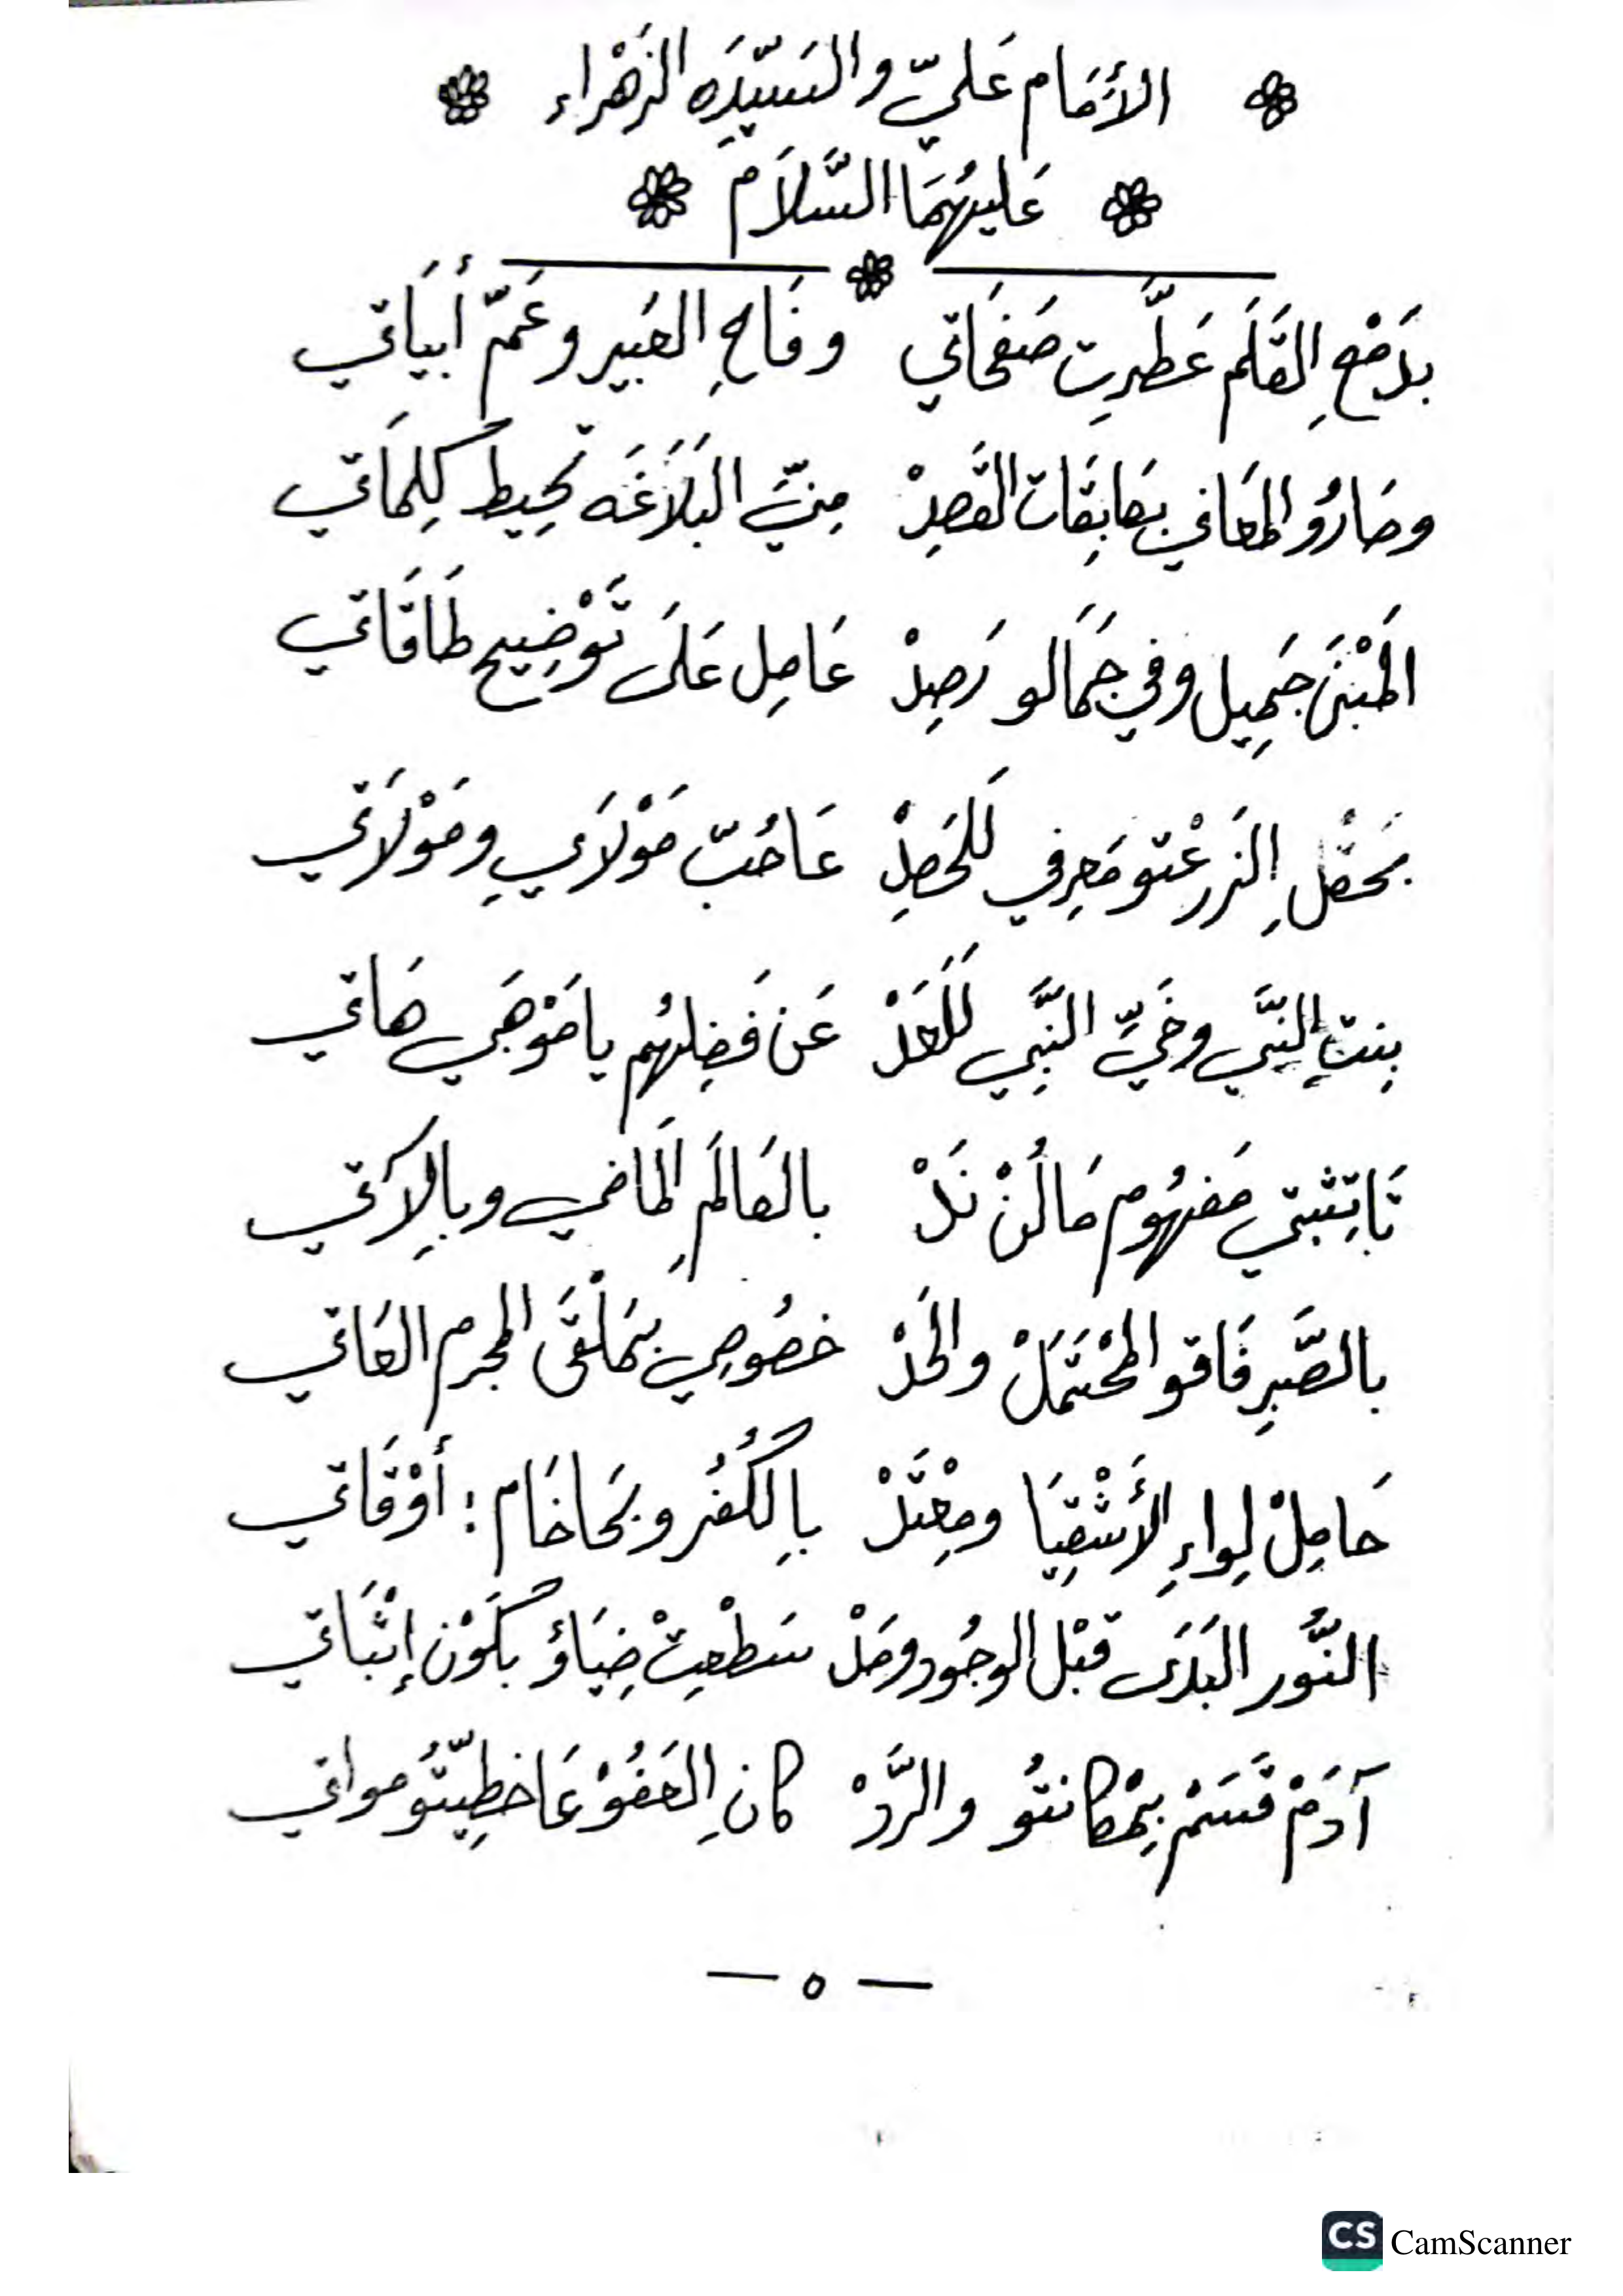 الأمَام عَليّ والسَيّدِه الزَهْراء
عَليهُمَا السَّلاَم
بدَمْعِ القَلَم عَطَّرِت صَفحَاتي وفَاحِ العَبير وعَمّ أبيَاتي
وصَارُو المعَاني بِقَا القَصِدْ مِنيّ البَلَاغَه تحِيط كِلمَاتي
المَبْنَى جَمِيل وفي جَمَالو رَصِدْ عَامِل عَلَى تَوْضِيح طَاقَاتي
بحَقْلِ الزَرعْتو مَعِرفي للحَصِدْ عَا حُبّ مَوْلاَيِ ومَوْلاَتي
بِنتِ النَّبي وخَيِّ النَّبِي لَلعَدْ عَن فَضِلهُم يا مَوْهَبي هَاتي
تَا تِثبتي مَفهُوم مَا لُنْ نَدْ بالعَالَمِ المَاضي وبِالِآتي
بالصَّبرِ فَاقو المحْتَمَلْ والحَدْ خصُوصِي بمَلْقَى المجرم العَاتي
حَامِلْ لِواءِ الأشْقِيَا ومِعْتَدْ بِالكُفُر وبحَاخَام : أوْقَاتي
النُّور البَدَى قبْل الوجُود ومَدْ سَطْعِتْ ضِيَاؤ بكَوْن إثْبَاتي
آدَمْ قَسَمْ بِمْكانتُو والرَّدْ كانِ العَفُوْ عَا خطِيّتُو مواتي
— ٥ —
CS CamScanner